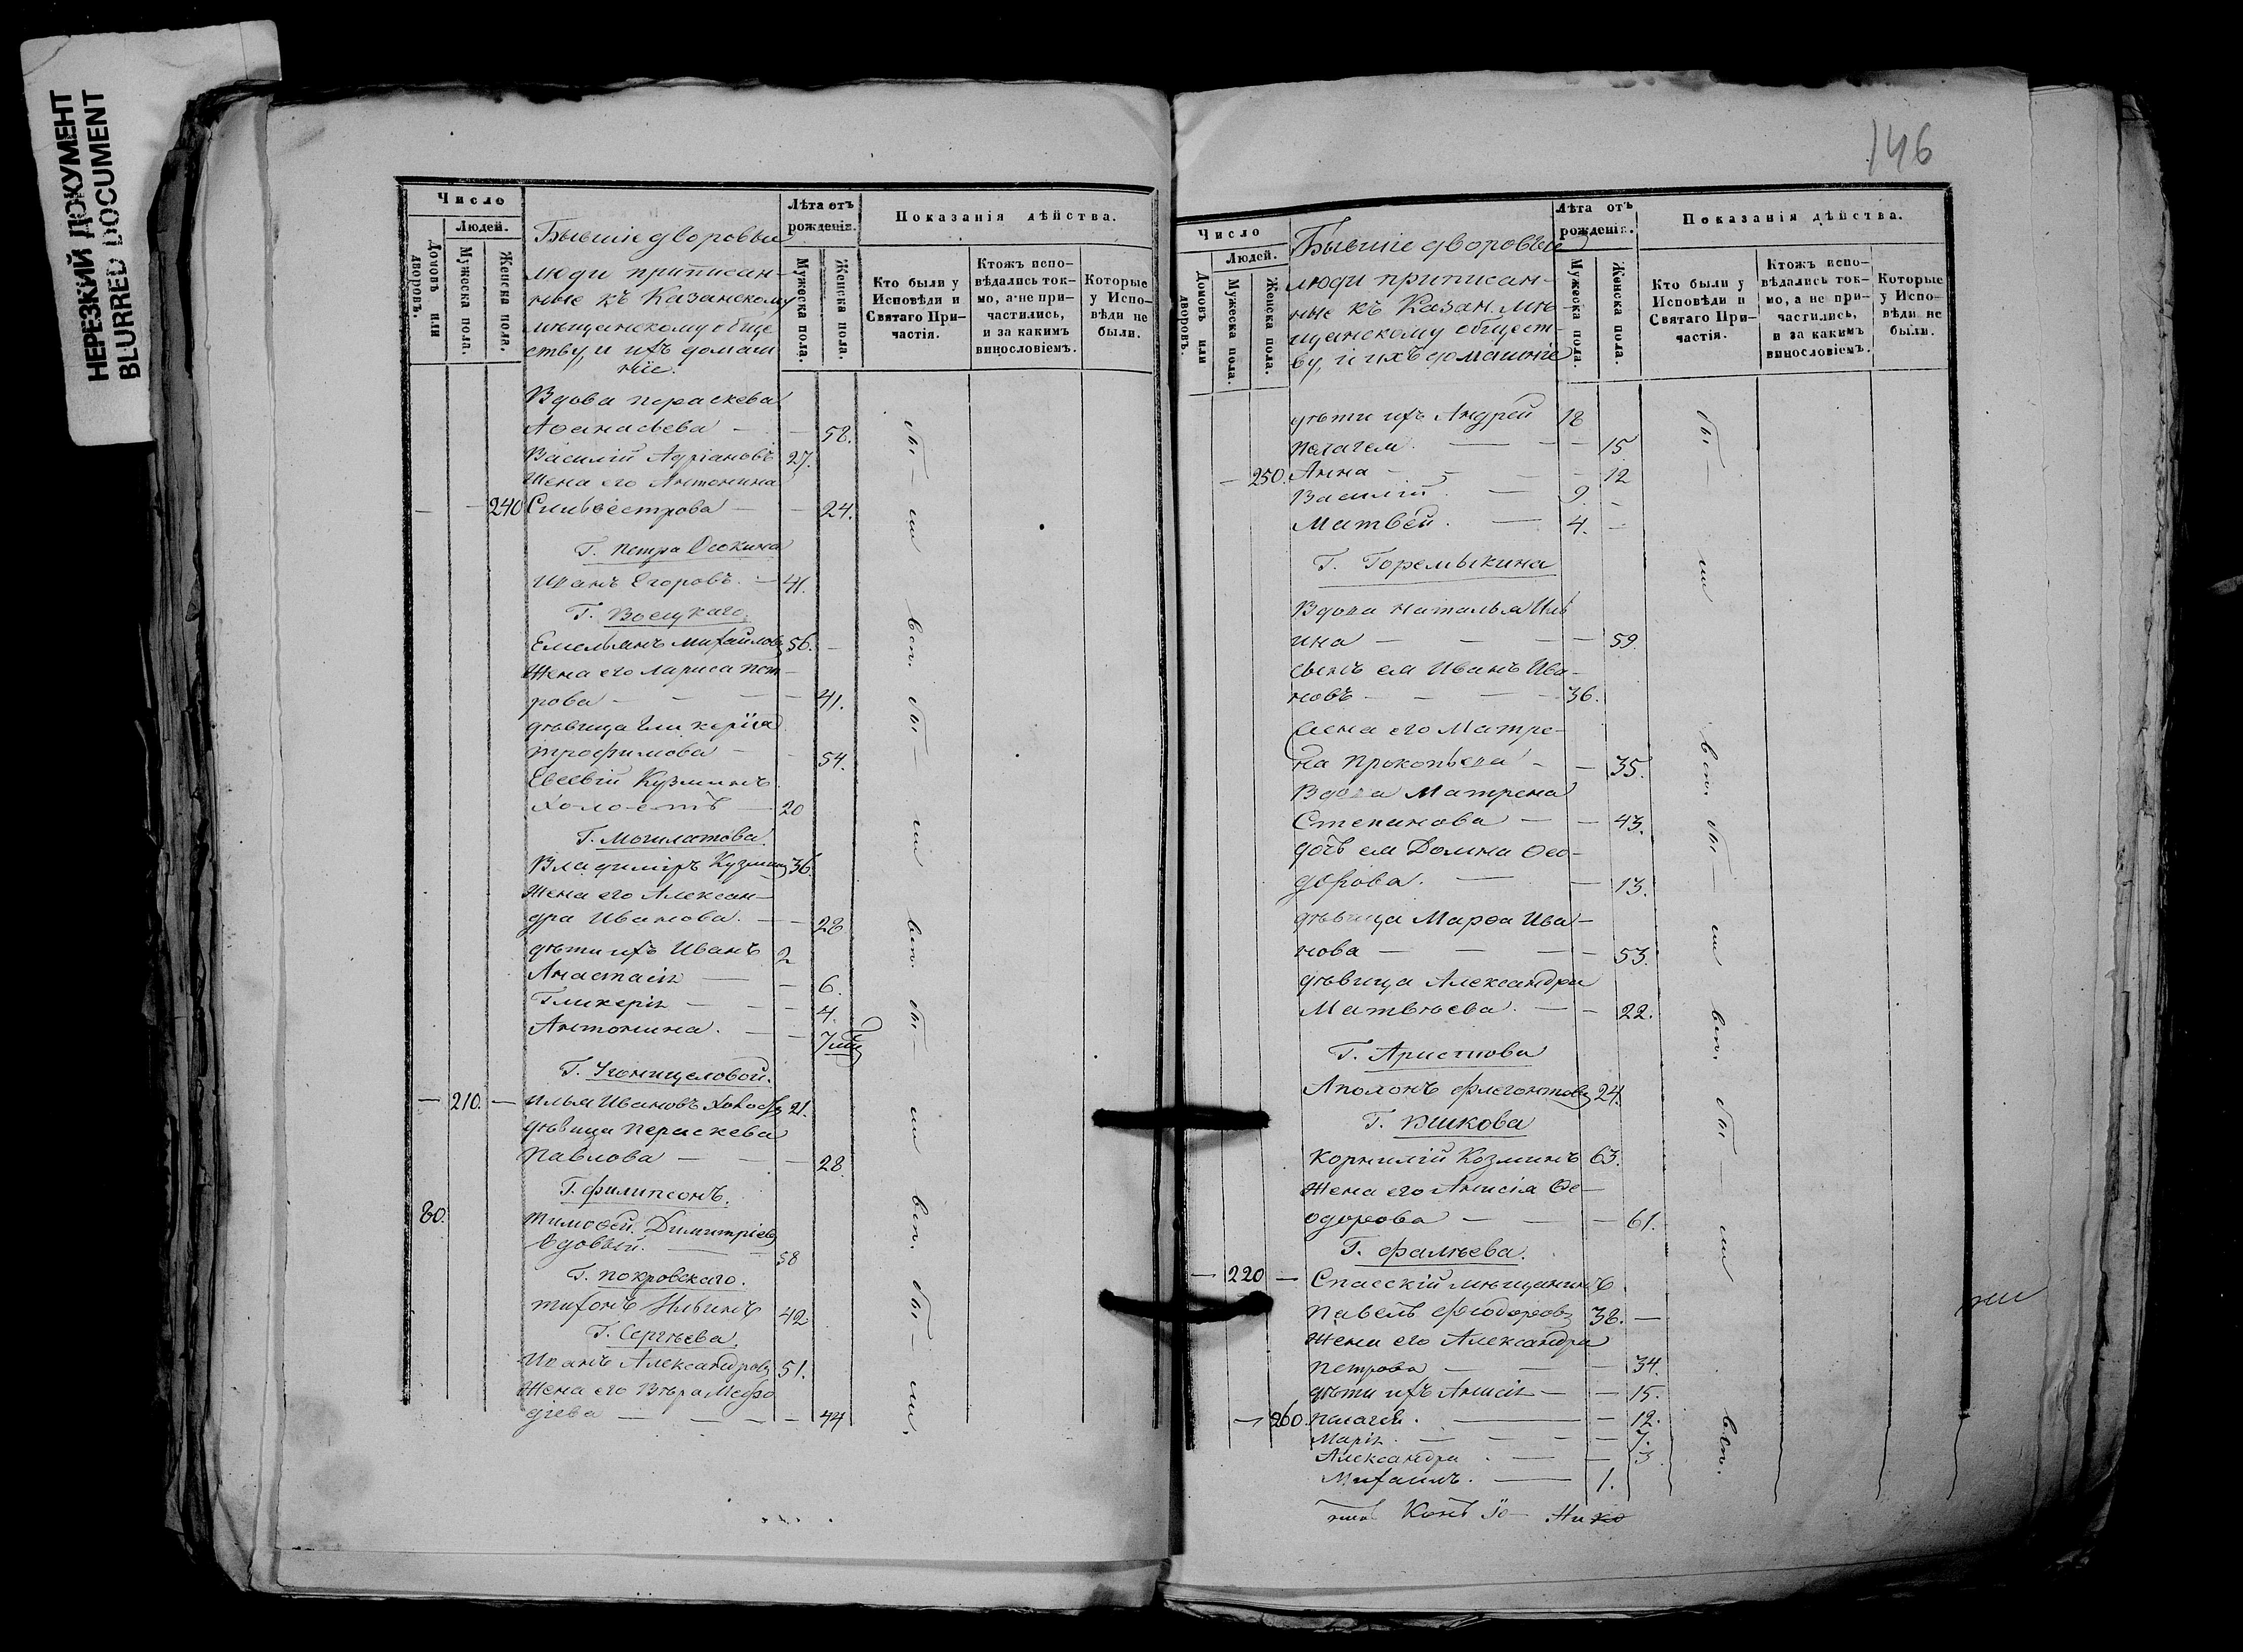 НЕРЕЗКИЙ ДОКУМЕНТ
BLURRED DOCUMENT
Число
Людей.
Домовъ или дворовъ.
Мужеска пола.
Женска пола.
Бывшіе дворовыя
люди приписан-
ные къ Казанскому
мѣщанскому обще
ству, и ихъ домаш
ніе.
Лѣта отъ рожденія.
Мужеска пола.
Женска пола.
Показанія дѣйства.
Кто были у Исповѣди и Святаго Причастія.
Ктожъ исповѣдались токмо, а не причастились, и за какимъ винословіемъ.
Которые у Исповѣди не были.
Вдова Параскева
Аѳанасьева — — 58.
Василій Адріановъ 27.
Жена его Антонина
— — 240 Сильвестрова — — 24.
Г. Петра Осокина
Иванъ Егоровъ. — 41.
Г.
Емельянъ Михайловъ 56. —
Жена его Лариса Пет-
рова — — — 41.
дѣвица Гликерія
Трофимова — — 54.
Евсевій Кузминъ
холостъ — 20
Г. Могилатова.
Владиміръ Кузминъ 36.
Жена его Алексан-
дра Иванова. — — 28
дѣти ихъ Иванъ 2
Анастасія — — 6.
Гликерія — — 4.
Антонина. — — 7 мѣ
Г.
— 210. — Илья Ивановъ холостъ 21.
дѣвица Параскева
Павлова — — — 28
Г. Филипсонъ.
80. Тимоѳей Димитріевъ
вдовый. — 58
Г. Покровскаго.
Тихонъ Ильинъ 42
Г. Сергѣева.
Иванъ Александровъ 51.
Жена его Вѣра Меѳо
діева — — — — 44
бы — ли вси. бы — ли вси. бы — ли вси. бы — ли.
146
Число
Людей.
Домовъ или дворовъ.
Мужеска пола.
Женска пола.
Бывшіе дворовые
люди приписан-
ные къ Казан. мѣ
щанскому общест-
ву, и ихъ домашніе
Лѣта отъ рожденія.
Мужеска пола.
Женска пола.
Показанія дѣйства.
Кто были у Исповѣди и Святаго Причастія.
Ктожъ исповѣдались токмо, а не причастились, и за какимъ винословіемъ.
Которые у Исповѣди не были.
дѣти ихъ Андрей 18
Пелагея. — — — 15
— 250. Анна — — — 12
Василій. — 9. —
Матвей. — 4. —
Г. Горемыкина
Вдова Наталья Иль
ина — — — — 59.
сынъ ея Иванъ Ива-
новъ — — — 36.
Жена его Матре-
на Прокопьева — — 35.
Вдова Матрена
Степанова — — 43.
дочь ея Домна Ѳео-
дорова. — — 13.
дѣвица Марѳа Ива-
нова — — — 53.
дѣвица Александра
Матвѣева. — — 22.
Г. Аристова
Аполонъ Флегонтовъ 24.
Г.
Корнилій Козминъ 63.
Жена его Анисія Ѳе-
одорова — — — 61.
Г. Фалѣева.
— 220 — Спасскій мѣщанинъ
Павелъ Феодоровъ 38. —
Жена его Александра
Петрова — — — 34.
дѣти ихъ Анисія — — 15.
— 260. Палагея. — — 12.
Марія. — — — — 7.
Александра. — — 3.
Михаилъ. — 1.
бы — ли вси. бы — ли вси. бы — ли вси.